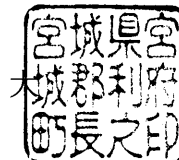 宮城県宮
大城郡利府
町長之印